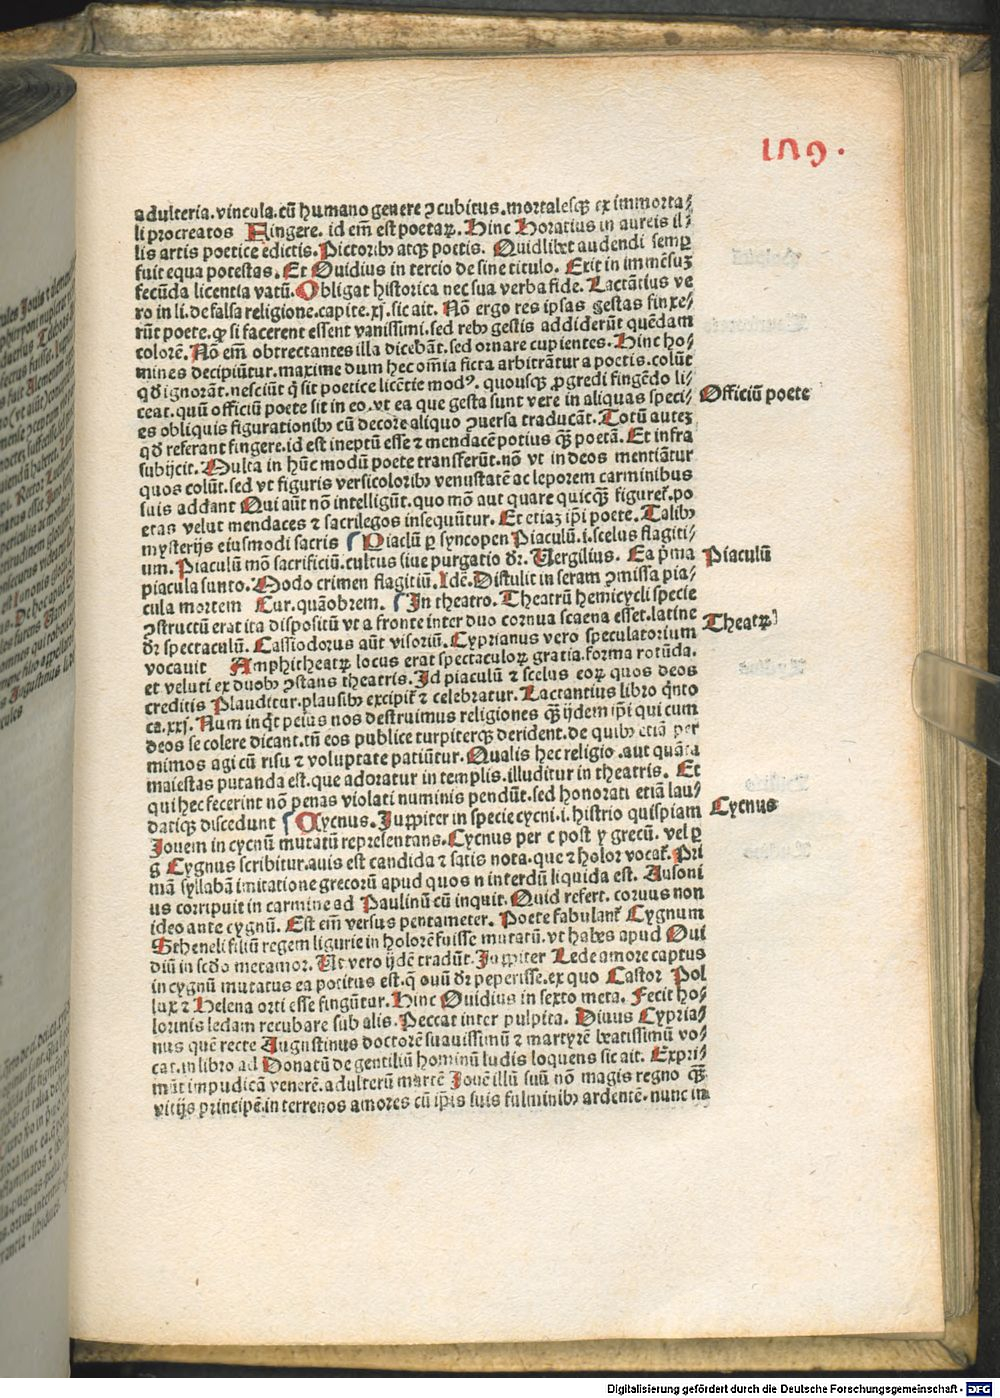 159.
adulteria.vincula.cū humano genere ↄcubitus.mortalesqꝫ ex immorta⸗
li procreatos Fingere. id em̄ est poetaꝝ. Hinc Horatius in aureis il⸗
lis artis poetice edictis. Pictoribꝰ atqꝫ poetis. Quidlibet audendi semꝑ
fuit equa potestas. Et Ouidius in tercio de sine titulo. Exit in immēsuꝫ
fecūda licentia vatū. Obligat historica nec sua verba fide. Lactātius ve
ro in li. de falsa religione.capite.xj. sic ait. Nō ergo res ipsas gestas finxe⸗
rūt poete. qꝛ si facerent essent vanissimi. sed rebꝰ gestis addiderūt quēdam
colorē. Nō em̄ obtrectantes illa dicebāt. sed ornare cupientes. Hinc ho⸗
mines decipiūtur. maxime dum hec om̄ia ficta arbitrātur a poetis. colūt
qđ ignorāt. nesciūt q̄ sit poetice licētie modꝰ. quousqꝫ ꝓgredi fingēdo li⸗
ceat. quū officiū poete sit in eo. vt ea que gesta sunt vere in aliquas speci⸗
Officiū poete
es obliquis figurationibꝰ cū decore aliquo ↄuersa traducāt. Totū auteꝫ
qđ referant fingere. id est ineptū esse ⁊ mendacē potius qꝫ̄ poetā. Et infra
subijcit. Multa in hūc modū poete transferūt. nō vt in deos mentiātur
quos colūt. sed vt figuris versicoloribꝰ venustatē ac leporem carminibus
suis addant Qui aūt nō intelligūt. quo mō aut quare quicqꝫ̄ figuret̄. po
etas velut mendaces ⁊ sacrilegos insequūtur. Et etiaꝫ ip̄i poete. Talibꝰ
mysterijs eiusmodi sacris Piaclū ꝑ syncopen Piaculū .i. scelus flagiti⸗
um. Piaculū mō sacrificiū. cultus siue purgatio dr̄. Vergilius. Ea p̄ma
Piaculū
piacula sunto. Modo crimen flagitiū. Idē. Distulit in seram ↄmissa pia⸗
cula mortem Cur. quāobrem. In theatro. Theatrū hemicycli specie
ↄstructū erat ita dispositū vt a fronte inter duo cornua scaena esset. latine
Theatꝝ
dr̄ spectaculū. Cassiodorus aūt visoriū. Cyprianus vero speculatorium
vocauit Amphitheatꝝ locus erat spectaculoꝝ gratia. forma rotūda.
et veluti ex duobꝰ ↄstans theatris. Id piaculū ⁊ scelus eoꝝ quos deos
creditis Plauditur. plausibꝰ excipit̄ ⁊ celebratur. Lactantius libro q̄nto
ca. xxj. Num inq̄t peius nos destruimus religiones qꝫ̄ ijdem ip̄i qui cum
deos se colere dicant. tn̄ eos publice turpiterqꝫ derident. de quibꝰ etiā per
mimos agi cū risu ⁊ voluptate patiūtur. Qualis hec religio. aut quāta
maiestas putanda est. que adoratur in templis. illuditur in theatris. Et
qui hec fecerint nō penas violati numinis pendūt. sed honorati etiā lau⸗
datiqꝫ discedunt Cycnus. Juppiter in specie cycni .i. histrio quispiam
Cycnus
Jouem in cycnū mutatū representans. Cycnus per c post y grecū. vel ꝑ
g Cygnus scribitur. auis est candida ⁊ satis nota. que ⁊ holor vocat̄. Pri
mā syllabā imitatione grecorū apud quos n interdū liquida est. Ausoni
us corripuit in carmine ad Paulinū cū inquit. Quid refert. coruus non
ideo ante cygnū. Est em̄ versus pentameter. Poete fabulant̄ Cygnum
Stheneli filiū regem ligurie in holorē fuisse mutatū. vt habes apud Oui
diū in scd̄o metamor. At vero ijdē tradūt. Juppiter Lede amore captus
in cygnū mutatus ea potitus est. q̄ ouū dr̄ peperisse. ex quo Castor Pol
lux ⁊ Helena orti esse fingūtur. Hinc Ouidius in sexto meta. Fecit ho⸗
lorinis ledam recubare sub alis. Peccat inter pulpita. Diuus Cypria⸗
nus quē recte Augustinus doctorē suauissimū ⁊ martyrē beatissimū vo⸗
cat. in libro ad Donatū de gentiliū hominū ludis loquens sic ait. Expri⸗
mūt impudicā venerē. adulterū martē Jouē illū suū nō magis regno qꝫ̄
vitijs principē. in terrenos amores cū ip̄is suis fulminibꝰ ardentē. nunc in
Digitalisierung gefördert durch die Deutsche Forschungsgemeinschaft - DFG